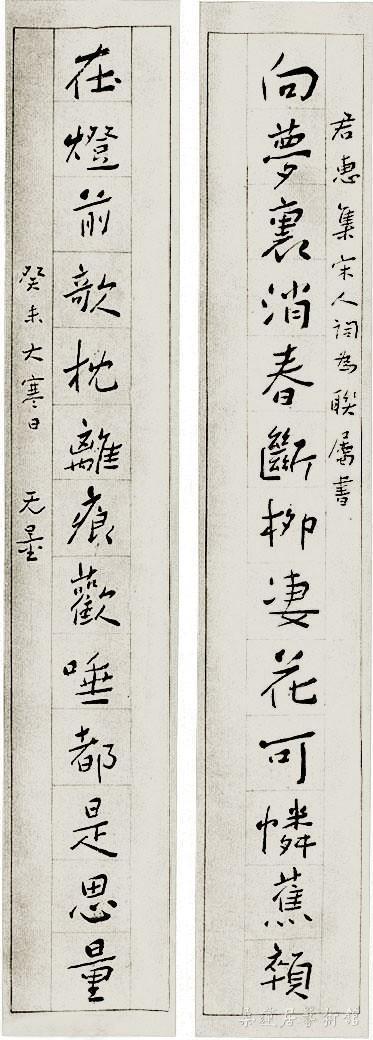 君惠集宋人詞為聯屬書
向夢裏消春斷柳凄花可憐蕉顇
在燈前欹枕離痕歡唾都是思量
癸未大寒日 无量